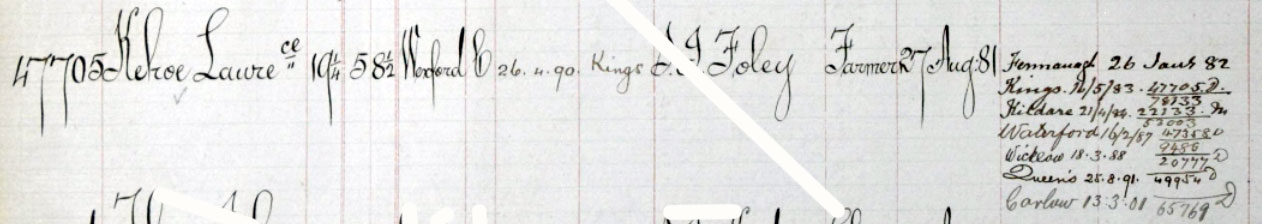 47705 Kehoe Laurce 19¼ 5 8½ Wexford C 26.4.90. Kings Foley Farmer 27 Aug: 81
Fermanagh 26 Jany 82
Kings. 14/5/83. 47705 D.
78133
Kildare 21/4/84. 22133.
52003
Waterford 16/2/87 47358 D
9486
Wicklow 18.3.88 20777 D
Queen's 25.8.91. 49954 D
Carlow 13.3.01 65769 D